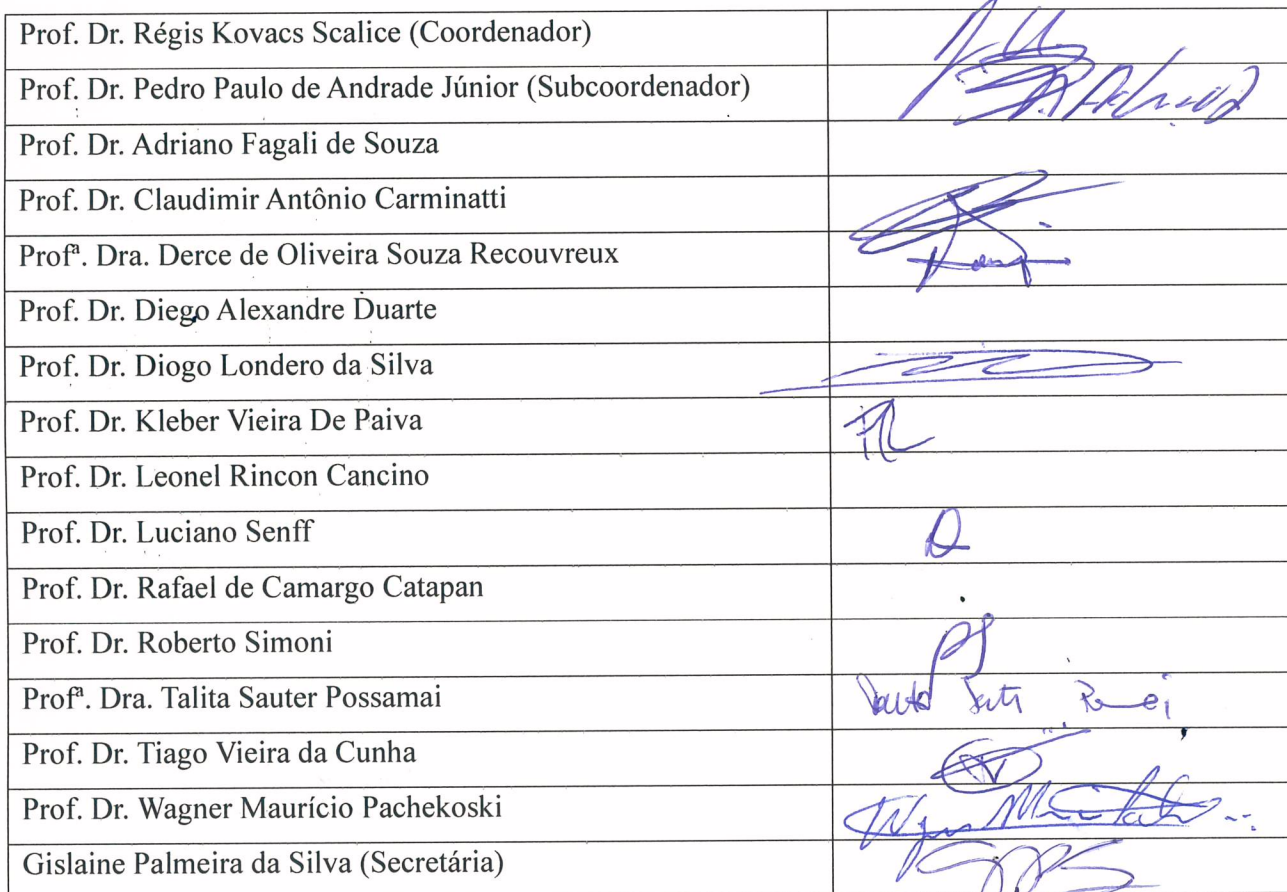 Prof. Dr. Régis Kovacs Scalice (Coordenador)
Prof. Dr. Pedro Paulo de Andrade Júnior (Subcoordenador)
Prof. Dr. Adriano Fagali de Souza
Prof. Dr. Claudimir Antônio Carminatti
Profª. Dra. Derce de Oliveira Souza Recouvreux
Prof. Dr. Diego Alexandre Duarte
Prof. Dr. Diogo Londero da Silva
Prof. Dr. Kleber Vieira De Paiva
Prof. Dr. Leonel Rincon Cancino
Prof. Dr. Luciano Senff
Prof. Dr. Rafael de Camargo Catapan
Prof. Dr. Roberto Simoni
Profª. Dra. Talita Sauter Possamai
Prof. Dr. Tiago Vieira da Cunha
Prof. Dr. Wagner Maurício Pachekoski
Gislaine Palmeira da Silva (Secretária)